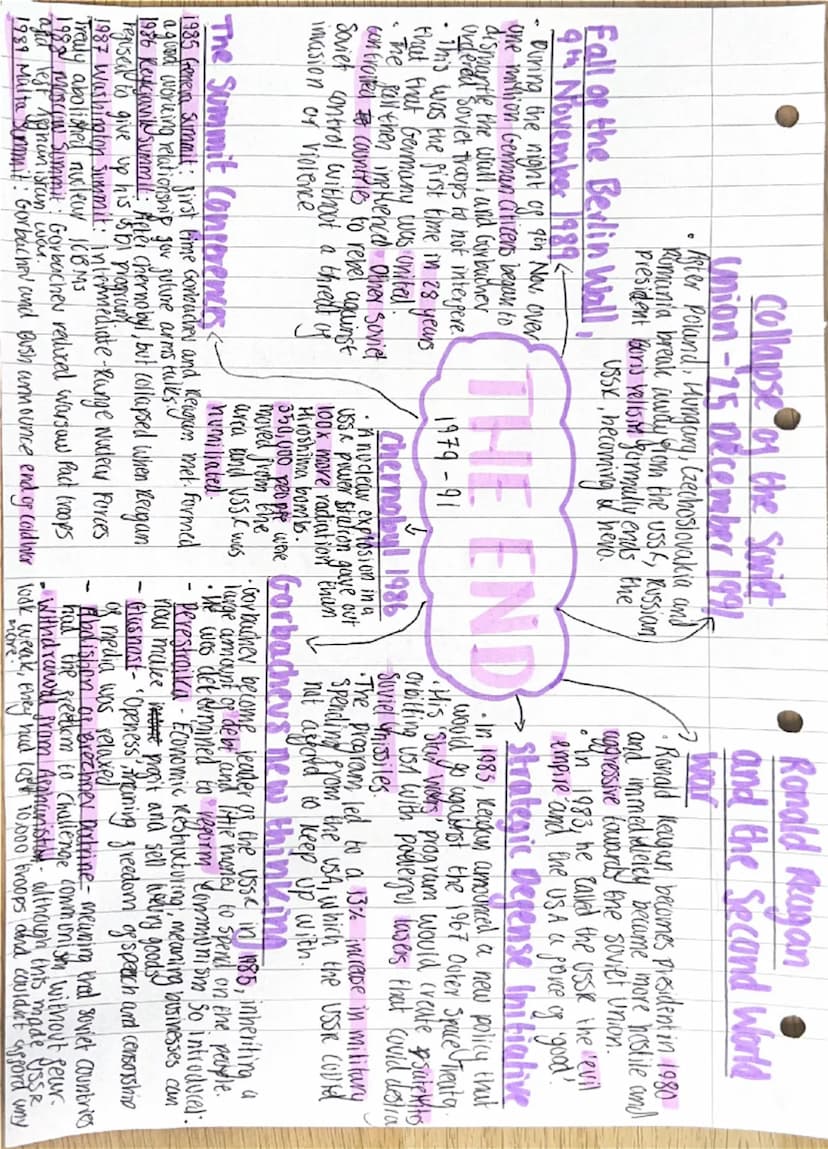 THE END
1979 - 91
Collapse of the Soviet
Union - 25 December 1991
• After Poland, Hungary, Czechoslovakia and
Romania break away from the USSR, Russian
president Boris Yeltsin formally ends the
USSR, becoming a hero.
Ronald Reagan
and the Second World
War
• Ronald Reagan becomes President in 1980
and immediately became more hostile and
aggressive towards the Soviet Union.
• In 1983, he called the USSR the 'evil
empire' and the USA a force of 'good'.
Strategic Defense Initiative
• In 1983, Reagan announced a new policy that
would go against the 1967 Outer Space Treaty.
• His 'Star Wars' program would create satellites
orbiting USA with powerful lasers that could destroy
Soviet missiles.
• The program led to a 13% increase in military
spending from the USA, which the USSR could
not afford to keep up with.
Gorbachevs new thinking
• Gorbachev become leader of the USSR in 1985, inheriting a
large amount of debt and little money to spend on the people.
• He was determined to 'reform' Communism so introduced:
- Perestroika - Economic Restructuring, meaning businesses can
now make profit and sell living goods
- Glasnost - 'Openess', meaning freedom of speech and censorship
of media was relaxed
- Abolishion of Brezhnev Doctrine - meaning that Soviet countries
had the freedom to challenge communism without fear.
• Withdrawal from Afghanistan - although this made USSR
look weak, they had lost 10,000 troops and couldn't afford any
more.
Chernobyl 1986
• A nuclear explosion in a
USSR power station gave out
100x more radiation than
Hiroshima bombs.
350,000 people were
moved from the
area and USSR was
humiliated.
Fall of the Berlin Wall,
9th November 1989
• During the night of 9th Nov, over
one million German citizens began to
dismantle the wall, and Gorbachev
ordered Soviet troops to not intervene
• This was the first time in 28 years
that that Germany was united.
• The fall then influenced other Soviet
controlled countries to rebel against
Soviet control without a threat of
invasion or violence
The Summit Conferences
1985 Geneva Summit: first time Gorbachev and Reagan met. formed
a good working relationship for future arms talks
1986 Reykjavik Summit: After Chernobyl, but collapsed when Reagan
refused to give up his SDI program
1987 Washington Summit: Intermediate-Range Nuclear Forces
Treaty abolished nuclear ICBMs
1988 Moscow Summit: Gorbachev reduced Warsaw Pact troops
and left Afghanistan war.
1989 Malta Summit: Gorbachev and Bush announce end of cold war